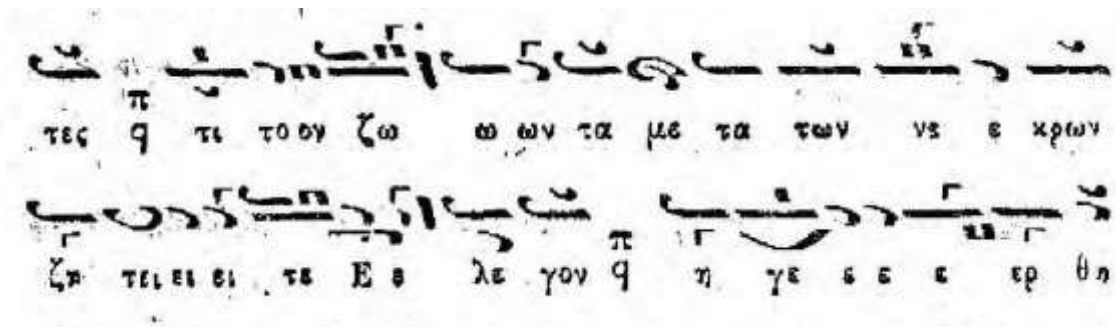 τες π q τι το ον ζω ω ων τα με τα των νε ε κρων
ζη τει ει ει τε Ε ε λε γον π q η γε ε ε ε ερ θη